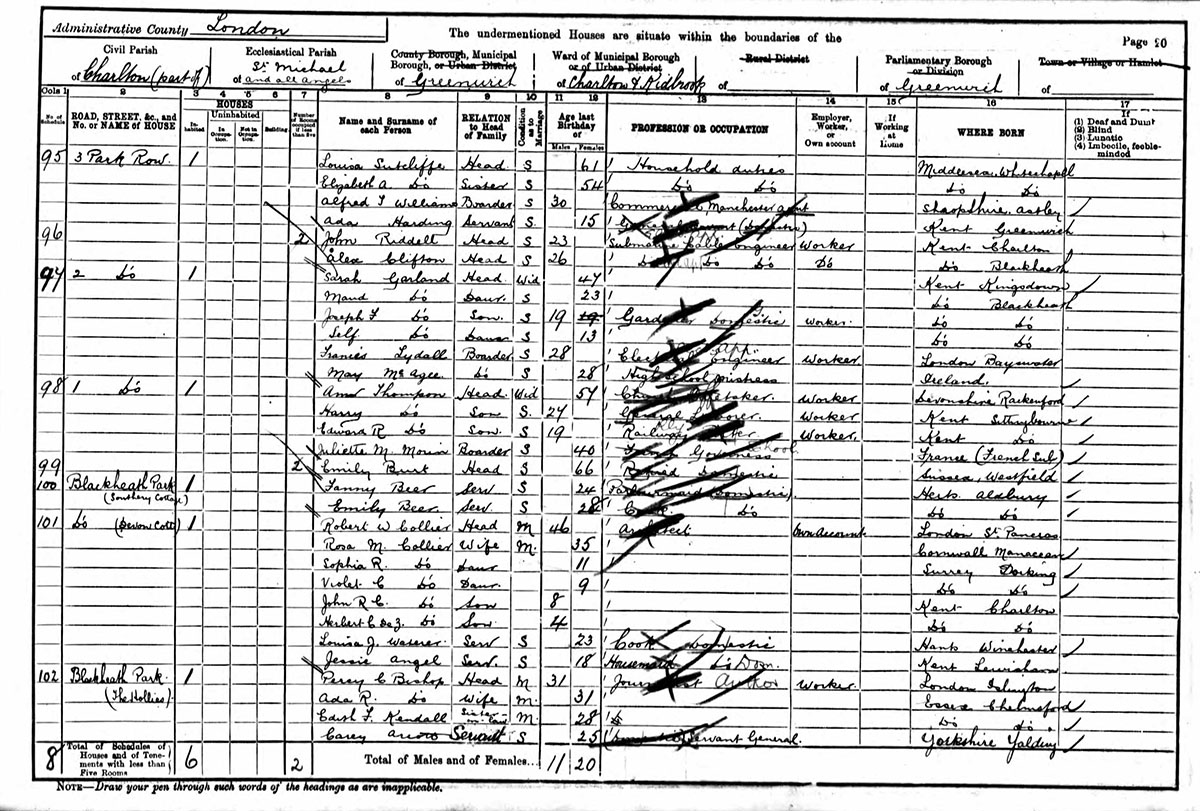 Administrative County London
The undermentioned Houses are situate within the boundaries of the
Page 20
Civil Parish of Charlton (part of)
Ecclesiastical Parish of St Michael and all Angels
County Borough, Municipal Borough, or Urban District of Greenwich
Ward of Municipal Borough or of Urban District of Charlton & Kidbrook
Rural District of
Parliamentary Borough or Division of Greenwich
Town or Village or Hamlet of
Cols 1 2 3 4 5 6 7 8 9 10 11 12 13 14 15 16 17
No. of Schedule
ROAD, STREET, &c., and No. or NAME of HOUSE
HOUSES
Inhabited
Uninhabited
In Occupation
Not in Occupation
Building
Number of Rooms occupied if less than five
Name and Surname of each Person
RELATION to Head of Family
Condition as to Marriage
Age last Birthday of
Males Females
PROFESSION OR OCCUPATION
Employer, Worker, or Own account
If Working at Home
WHERE BORN
If
(1) Deaf and Dumb
(2) Blind
(3) Lunatic
(4) Imbecile, feeble-minded
95 3 Park Row. 1 Louisa Sutcliffe Head S 61 Household duties Middlesex Whitechapel
Elizabeth A. Do Sister S 54 Do Do Do Do
Alfred T Williams Boarder S 30 Commercial Manchester agent Shropshire, Astley
Ada Harding Servant S 15 General Servant (Domestic) Kent Greenwich
96 2 John Riddell Head S 23 Submarine Cable Engineer Worker Kent Charlton
Alex Clifton Head S 26 Do Do Do Do Do Blackheath
97 2 Do 1 Sarah Garland Head Wid 47 Kent Kingsdown
Maud Do Daur. S 23 Do Blackheath
Joseph F Do Son. S 19 19 Gardener Domestic Worker. Do Do
Self Do Daur S 13 Do Do
Francis Lydall Boarder S 28 Electrical Engineer App. Worker London Bayswater
May McAgee Do S 28 High School Mistress Ireland.
98 1 Do 1 Ann Thompson Head Wid 57 Caretaker. Worker Devonshire Rackenford
Harry Do Son S. 27 General Laborer. Worker Kent Sittingbourne
Edward R Do Son. S 19 Railway Porter Worker. Kent Do
Juliette M. Morin Boarder S 40 French Governess School France (French Sub)
99 2 Emily Burt Head S 66 Retired Domestic Sussex, Westfield
100 Blackheath Park (Southery Cottage) 1 Fanny Beer Serv S 24 Parlourmaid (Domestic) Herts Aldbury
Emily Beer Serv. S 28 Cook Do Do Do
101 Do (Devon Cott) 1 Robert W Collier Head M 46 Architect Own Account London St Pancras
Rosa M. Collier Wife M. 35 Cornwall Manaccan
Sophia R. Do Daur 11 Surrey Dorking
Violet C Do Daur. 9 Do Do
John R C. Do Son 8 Kent Charlton
Herbert C Do Son 4 Do Do
Louisa J. Waterer Serv S 23 Cook Domestic Hants Winchester
Jessie Angel Serv. S 18 Housemaid Do Dom. Kent Lewisham
102 Blackheath Park. (The Hollies) 1 Percy C Bishop Head M. 31 Journalist Author Worker London Islington
Ada R. Do Wife M. 31 Essex Chelmsford
Edith F. Kendall Sister in Law M. 28 Do Do
Carey Servant S 25 (Domestic) Servant General. Yorkshire
8 Total of Schedules of Houses and of Tenements with less than Five Rooms 6 2 Total of Males and of Females... 11 20
NOTE—Draw your pen through such words of the headings as are inapplicable.